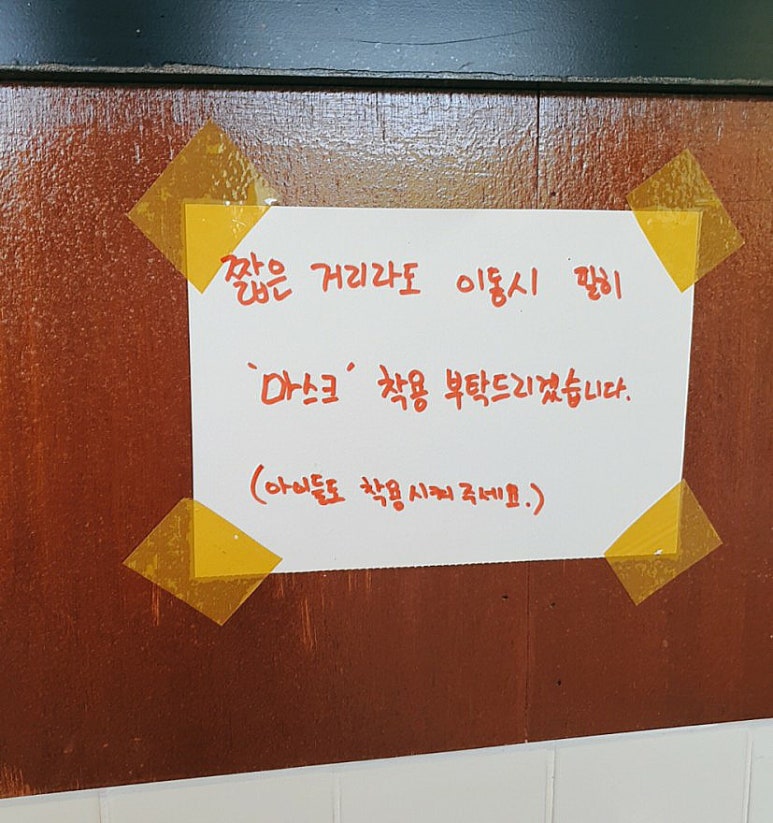 짧은 거리라도 이동시 필히
'마스크' 착용 부탁드리겠습니다.
(아이들도 착용시켜 주세요.)